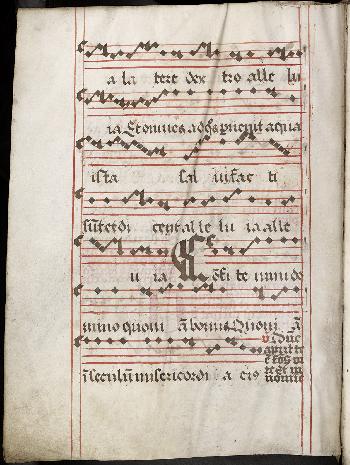 a la tere dex tro alle lu
ia Et omnes ad q̄s puenit aqua
ista sal ui fac ti
sūt et di cent alle lu ia alle
u ia Cōfi te mini do
mino quoni ā bonus Quoni ā
ī seculū misericordi a eis